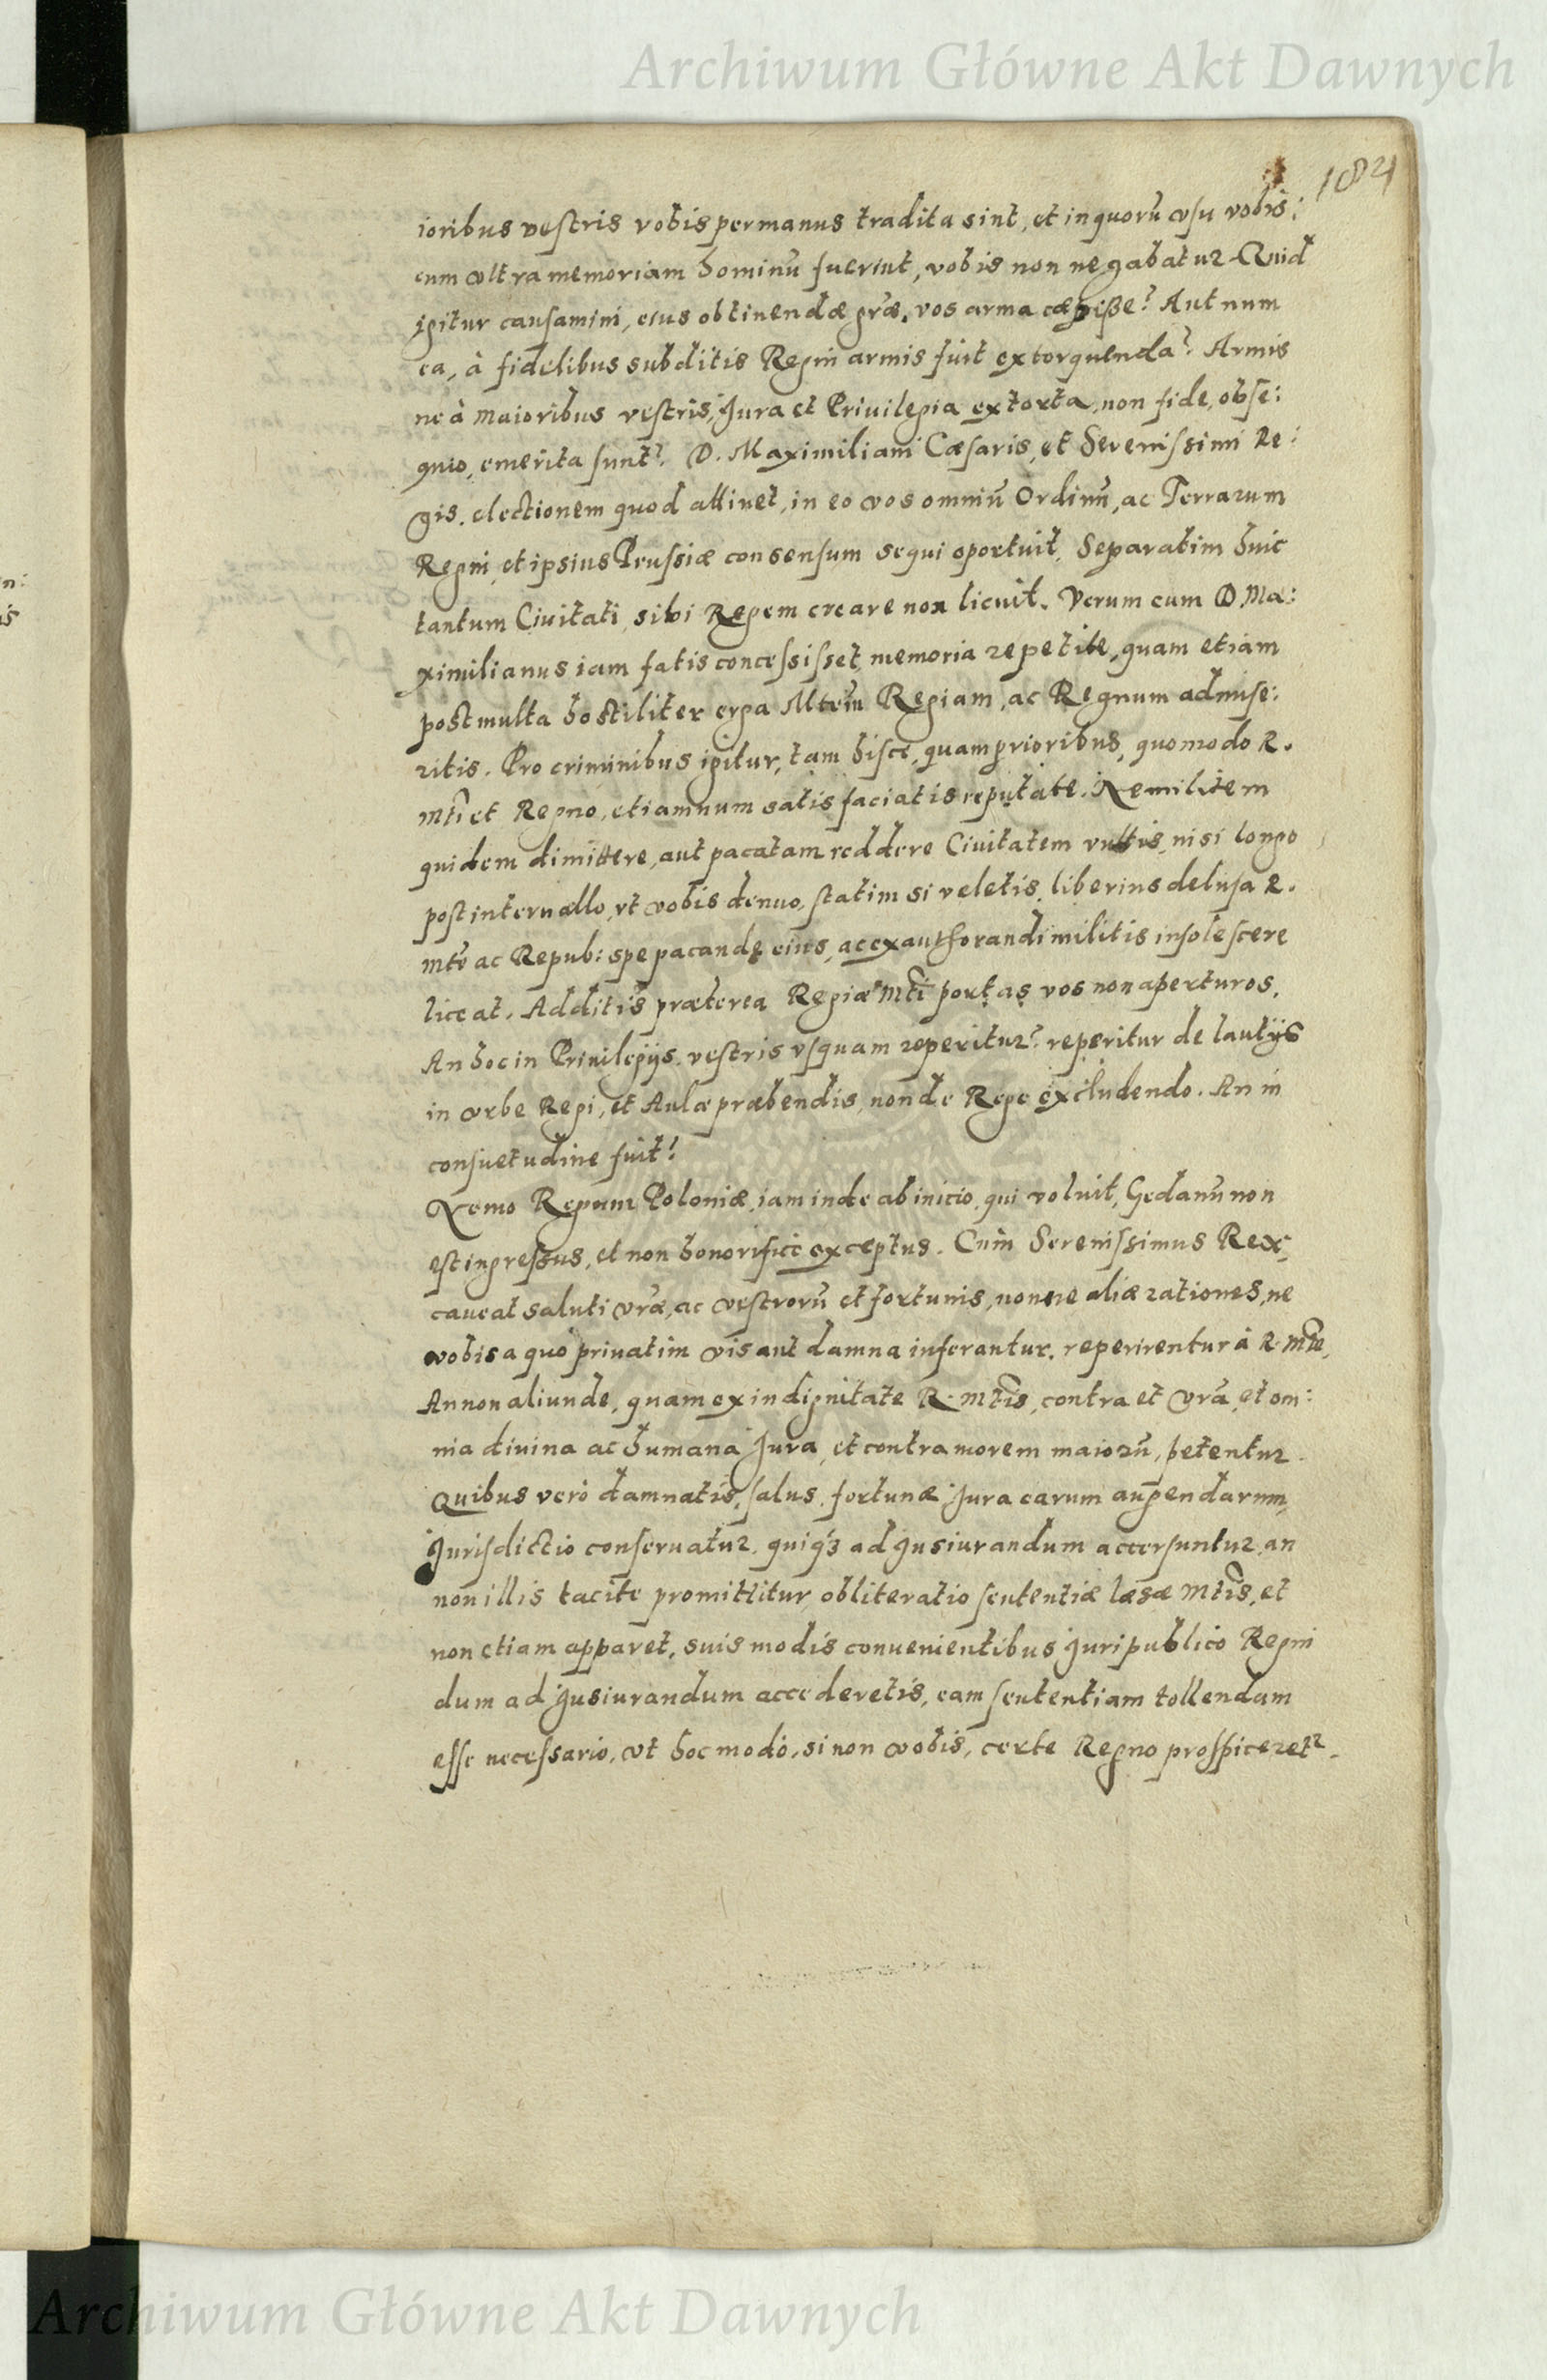 Archiwum Główne Akt Dawnych
ioribus vestris vobis per manus tradita sint, et in quorū vsu vobis:
cum vltra memoriam hominū fuerint, vobis non negabatur. Quid
igitur causamini, eius obtinendæ grã. vos arma cæpiße? Aut num
ea, à fidelibus subditis Regni armis fuit extorquenda? Armis
ne à maioribus vestris, Jura et Priuilegia extorta, non fide, obse:
quio, emerita sunt? D. Maximiliani Cæsaris, et Serenissimi Re:
gis. electionem quod attinet, in eo vos omniū Ordinū, ac Terrarum
Regni, et ipsius Prussiæ consensum sequi oportuit, Separatim huic
tantum Ciuitati, sibi Regem creare non licuit. Verum cum D. Ma:
ximilianus iam fatis concessisset, memoria repetite, quam etiam
post multa hostiliter erga Mtem̃ Regiam, ac Regnum admise:
ritis. Pro criminibus igitur, tam hisce, quam prioribus, quomodo R.
Mtĩ et Regno, etiamnum satis faciatis reputate. Ne militem
quidem dimittere, aut pacatam reddere Ciuitatem vultis, nisi longo
post interuallo, vt vobis denuo, statim si veletis, liberius delusa R.
Mtẽ ac Repub: spe pacandę eius, ac exauthorandi militis insolescere
liceat. Additis præterea Regiæ Mtĩ portas vos non aperturos.
An hoc in Priuilegijs vestris vsquam reperitur? reperitur de lautijs
in vrbe Regi, et Aulæ præbendis, non de Rege excludendo. An in
consuetudine fuit?
Nemo Regum Poloniæ, iam inde ab inicio, qui voluit, Gedanū non
est ingressus, et non honorificè exceptus. Cum Serenissimus Rex,
caueat saluti vrã̃e, ac vestrorū et fortunis, nonne aliæ rationes, ne
vobis a quo priuatim vis aut damna inferantur, reperirentur à R. Mtẽ,
An non aliunde, quam ex indignitate R. Mtĩs, contra et vrã, et om:
nia diuina ac humana Jura, et contra morem maiorū, petentur.
Quibus verò damnatis, salus, fortunæ Jura earum augendarum,
Jurisdictio conseruatur, quiq3 ad Jusiurandum accersuntur, an
non illis tacite promittitur, obliteratio sententiæ læsæ Mtĩs, et
non etiam apparet, suis modis conuenientibus Juri publico Regni
dum ad Jusiurandum accederetis, eam sententiam tollendam
esse necessario, vt hoc modò, si non vobis, certe Regno prospiceretr.
Archiwum Główne Akt Dawnych